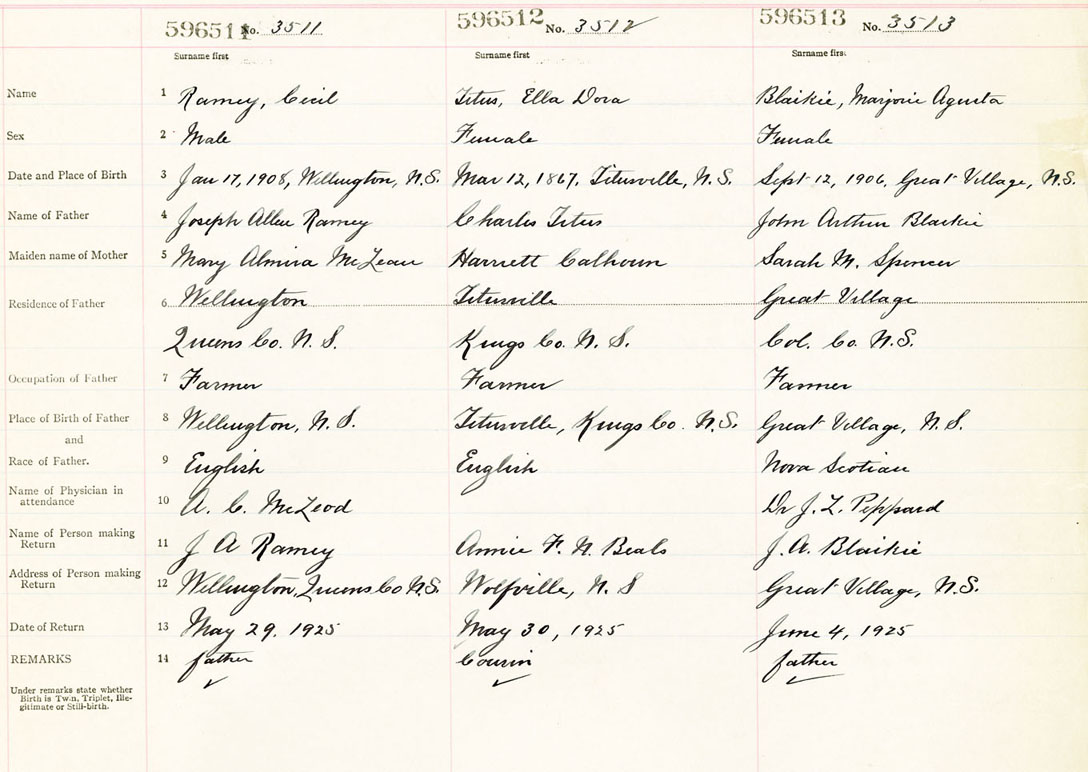 596511 No. 3511 596512 No. 3512 596513 No. 3513
Surname first Surname first Surname first
Name 1 Ramey, Cecil Titus, Ella Dora Blaikie, Marjorie Agusta
Sex 2 Male Female Female
Date and Place of Birth 3 Jan 17, 1908, Wellington, N.S. Mar 12, 1867, Titusville, N.S. Sept 12, 1906, Great Village, N.S.
Name of Father 4 Joseph Allen Ramey Charles Titus John Arthur Blaikie
Maiden name of Mother 5 Mary Almira McLean Harriett Calhoun Sarah M. Spencer
Residence of Father 6 Wellington Titusville Great Village
Queens Co. N. S. Kings Co. N. S. Col. Co. N.S.
Occupation of Father 7 Farmer Farmer Farmer
Place of Birth of Father 8 Wellington, N. S. Titusville, Kings Co. N.S. Great Village, N.S.
and
Race of Father. 9 English English Nova Scotian
Name of Physician in
attendance 10 A. C. McLeod Dr J. L. Peppard
Name of Person making
Return 11 J A Ramey Annie F. N. Beals J. A. Blaikie
Address of Person making
Return 12 Wellington, Queens Co N.S. Wolfville, N. S Great Village, N.S.
Date of Return 13 May 29, 1925 May 30, 1925 June 4, 1925
REMARKS 14 father Cousin father
Under remarks state whether
Birth is Twin, Triplet, Ille-
gitimate or Still-birth.